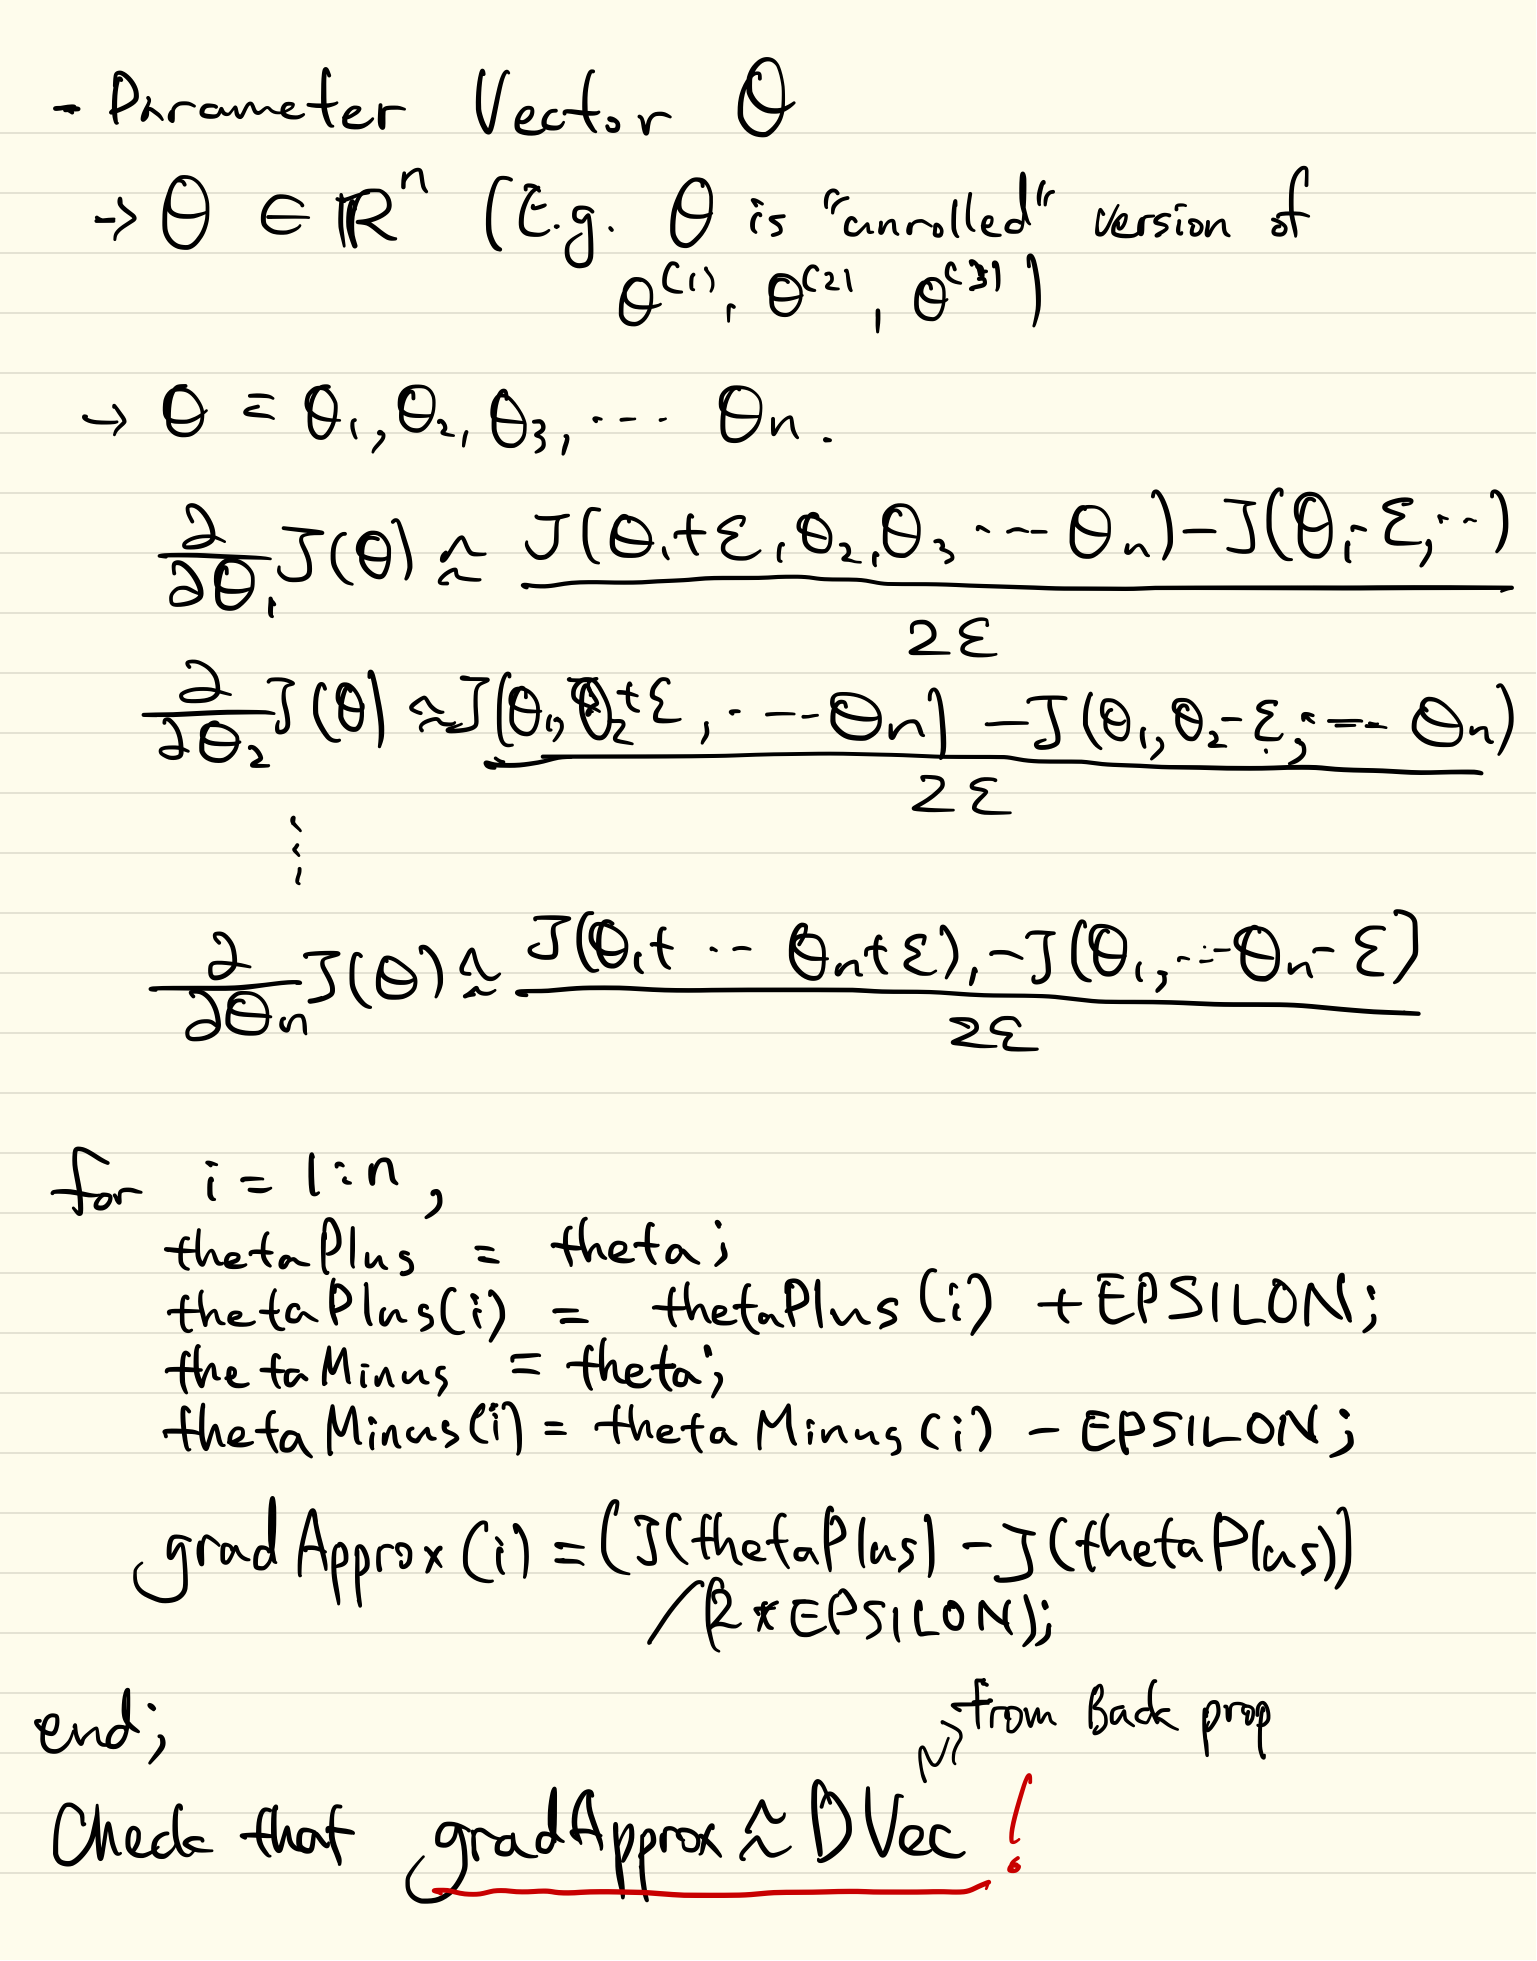 - Parameter Vector θ
→ θ ∈ ℝⁿ (E.g. θ is "unrolled" version of
θ⁽¹⁾, θ⁽²⁾, θ⁽³⁾)
→ θ = θ₁, θ₂, θ₃, ... θn.
∂/∂θ₁ J(θ) ≈ J(θ₁+ε, θ₂, θ₃ ... θn) - J(θ₁-ε, ...) / 2ε
∂/∂θ₂ J(θ) ≈ J(θ₁, θ₂+ε, ... θn) - J(θ₁, θ₂-ε, ... θn) / 2ε
⋮
∂/∂θn J(θ) ≈ J(θ₁+ ... θn+ε), - J(θ₁, ... θn-ε) / 2ε
for i = 1:n,
thetaPlus = theta;
thetaPlus(i) = thetaPlus(i) + EPSILON;
thetaMinus = theta;
thetaMinus(i) = thetaMinus(i) - EPSILON;
gradApprox(i) = (J(thetaPlus) - J(thetaPlus))
/(2*EPSILON);
end;
from Back prop
Check that gradApprox ≈ DVec !